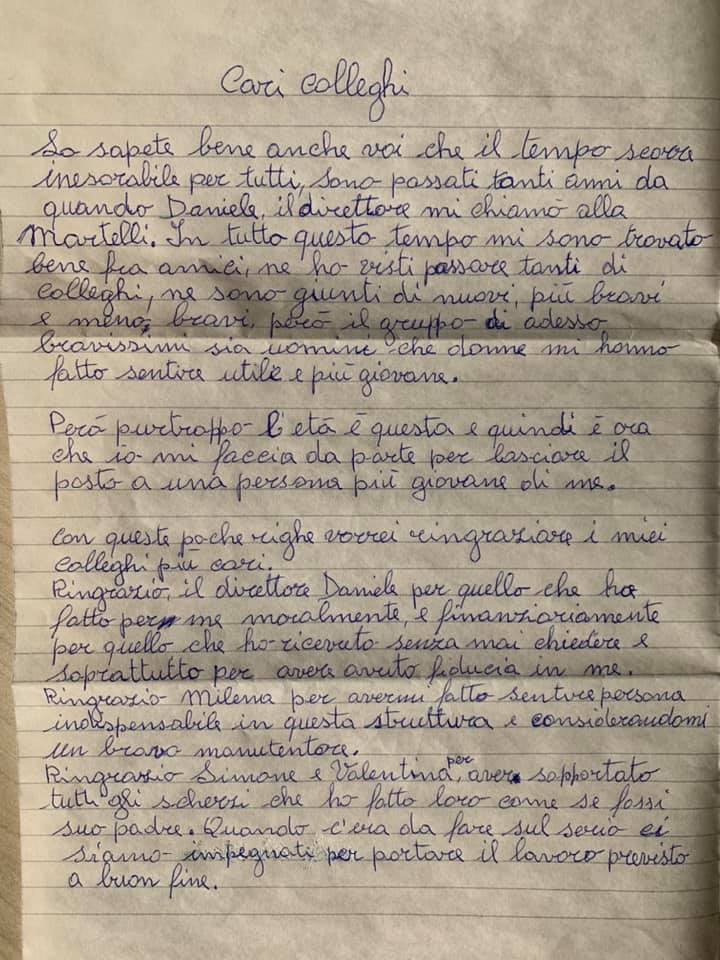 Cari colleghi
Lo sapete bene anche voi che il tempo scorre
inesorabile per tutti, sono passati tanti anni da
quando Daniele, il direttore mi chiamò alla
Martelli. In tutto questo tempo mi sono trovato
bene fra amici, ne ho visti passare tanti di
colleghi, ne sono giunti di nuovi, più bravi
e meno bravi, però il gruppo di adesso
bravissimi sia uomini che donne mi hanno
fatto sentire utile e più giovane.
Però purtroppo l'età è questa e quindi è ora
che io mi faccia da parte per lasciare il
posto a una persona più giovane di me.
Con queste poche righe vorrei ringraziare i miei
colleghi più cari.
Ringrazio, il direttore Daniele per quello che ha
fatto per me moralmente, e finanziariamente
per quello che ho ricevuto senza mai chiedere e
soprattutto per avere avuto fiducia in me.
Ringrazio Milena per avermi fatto sentire persona
indispensabile in questa struttura e considerandomi
un bravo manutentore.
Ringrazio Simone e Valentina, per aver sopportato
tutti gli scherzi che ho fatto loro come se fossi
suo padre. Quando c'era da fare sul serio ci
siamo impegnati per portare il lavoro previsto
a buon fine.